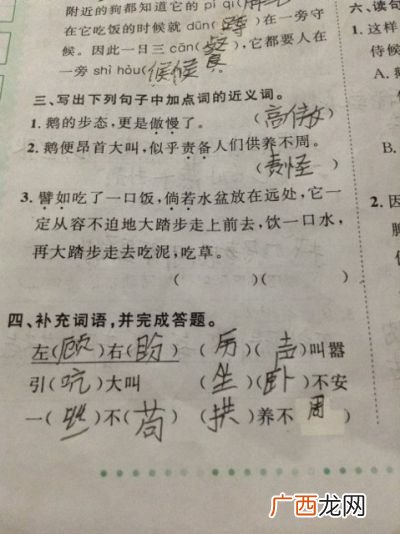 附近的狗都知道它的 pí qi(
六、读句
在它吃饭的时候就 dūn( ) 在一旁守
1. 这样
候。因此一日三 cān(餐),它都要人在
侍候
一旁 shì hòu(候候)
A.
三、写出下列句子中加点词的近义词。
1. 鹅的步态,更是傲慢了。 (高傲)
B.
2. 鹅便昂首大叫,似乎责备人们供养不周。
(责怪)
3. 譬如吃了一口饭,倘若水盆放在远处,它一
2. 因
定从容不迫地大踏步走上前去,饮一口水,
再大踏步走去吃泥,吃草。
( )( )
四、补充词语,并完成答题。
左(顾)右(盼) (厉)(声)叫嚣
引(吭)大叫 (坐)(卧)不安
一(丝)不(苟) (拱)养不(周)
广西龙网